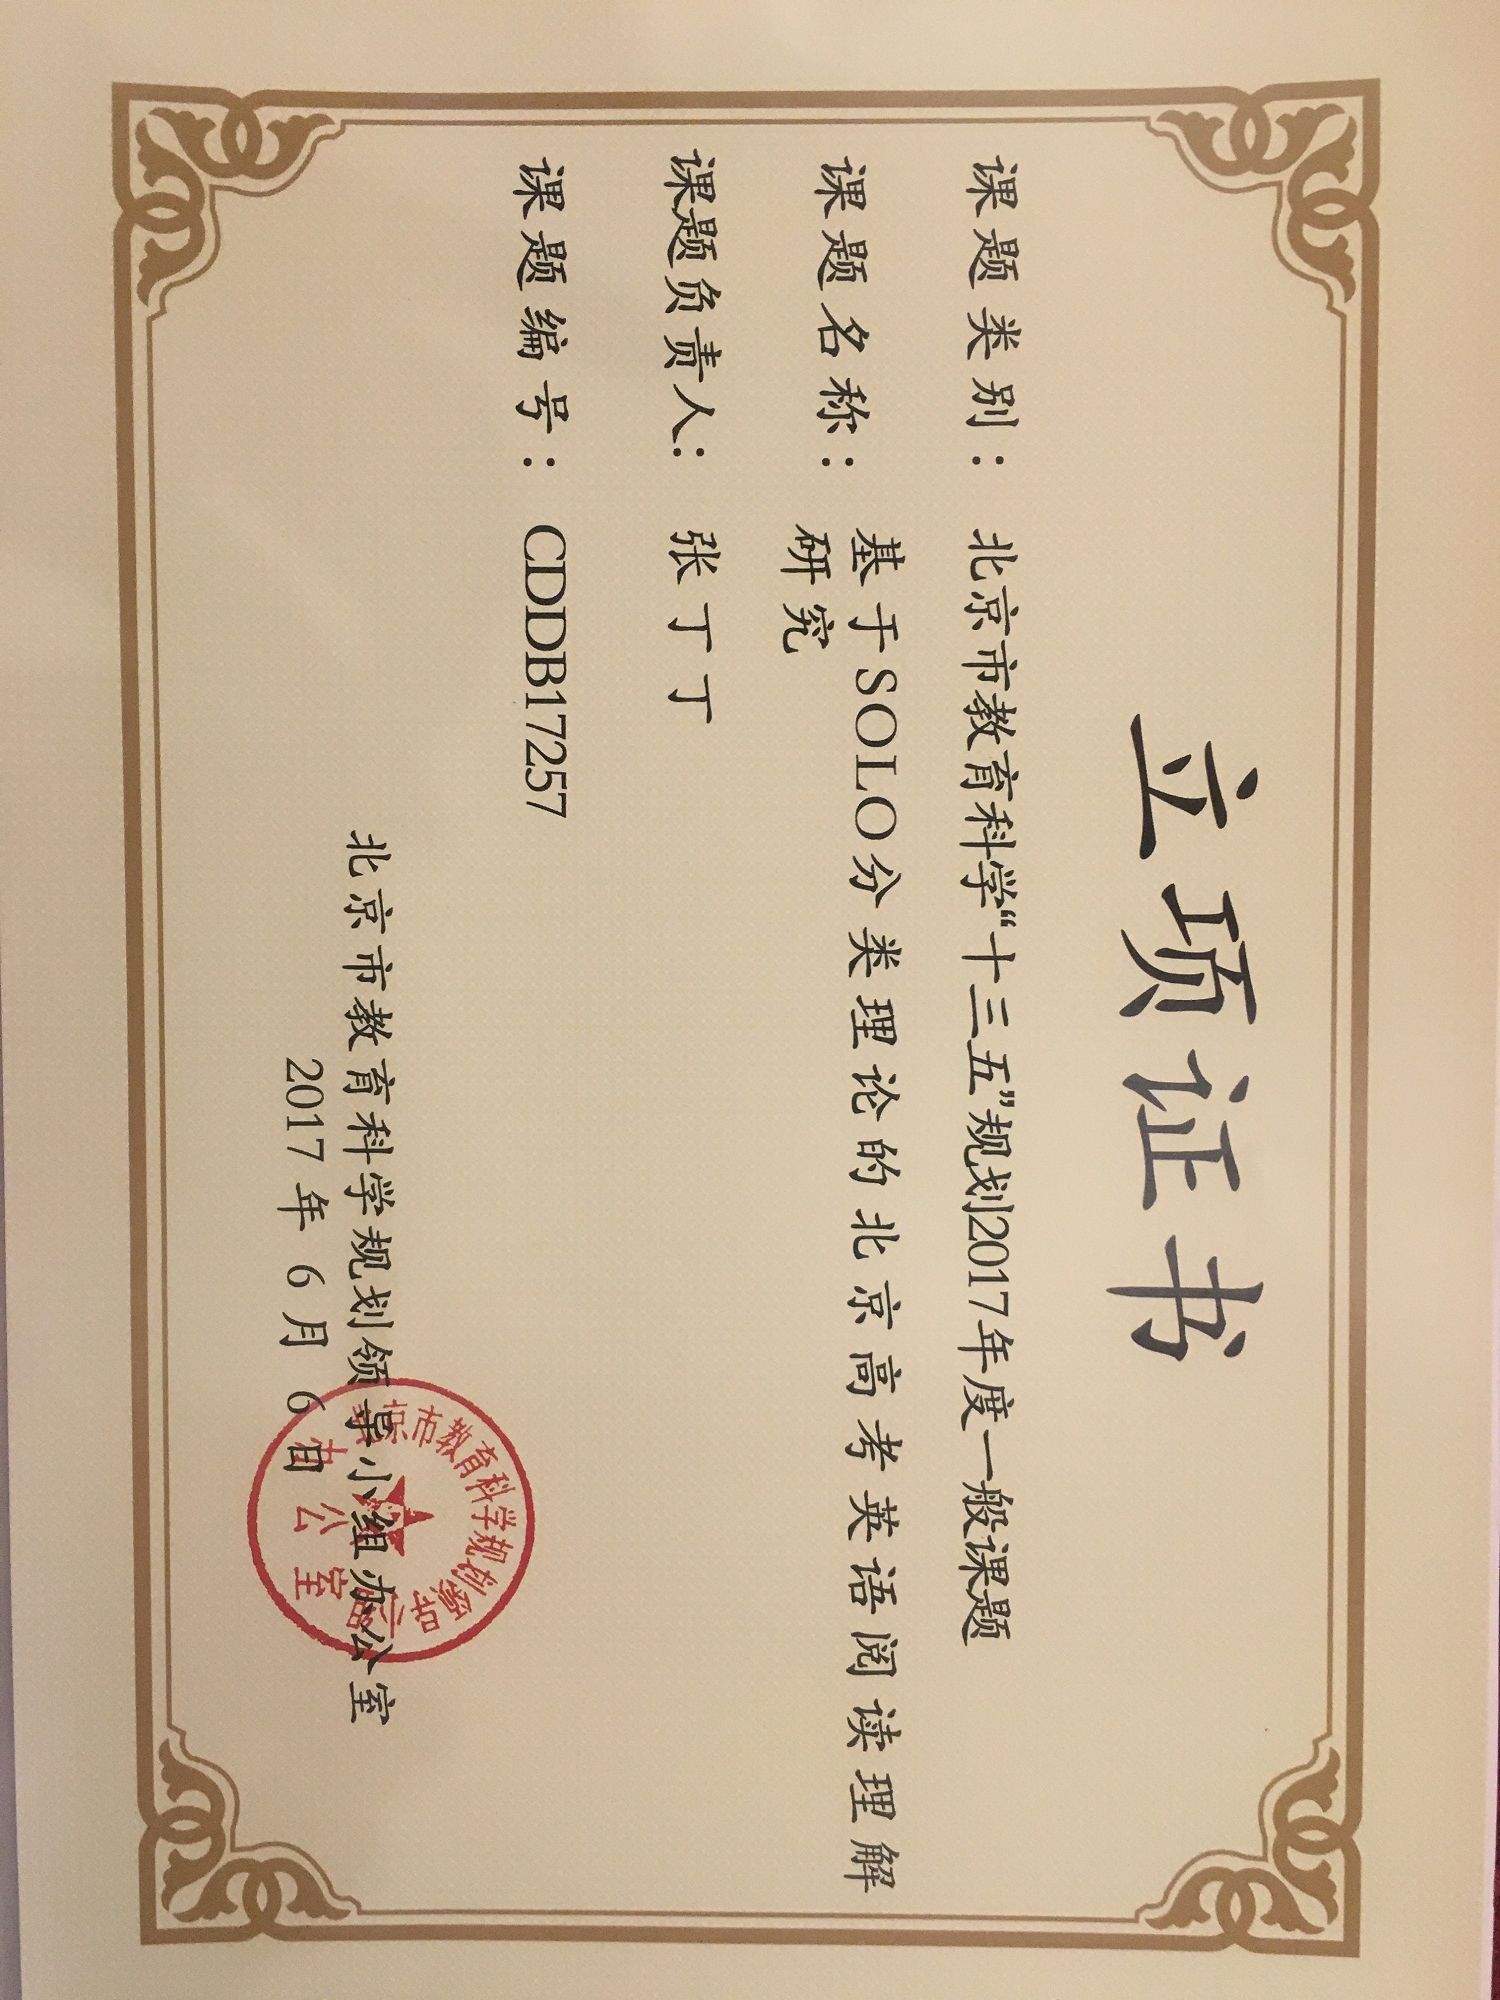 立项证书
课题类别：北京市教育科学“十三五”规划2017年度一般课题
课题名称：基于SOLO分类理论的北京高考英语阅读理解
研究
课题负责人：张丁丁
课题编号：CDDB17257
北京市教育科学规划领导小组办公室
2017年6月6日
北京市教育科学规划领导小组
办公室